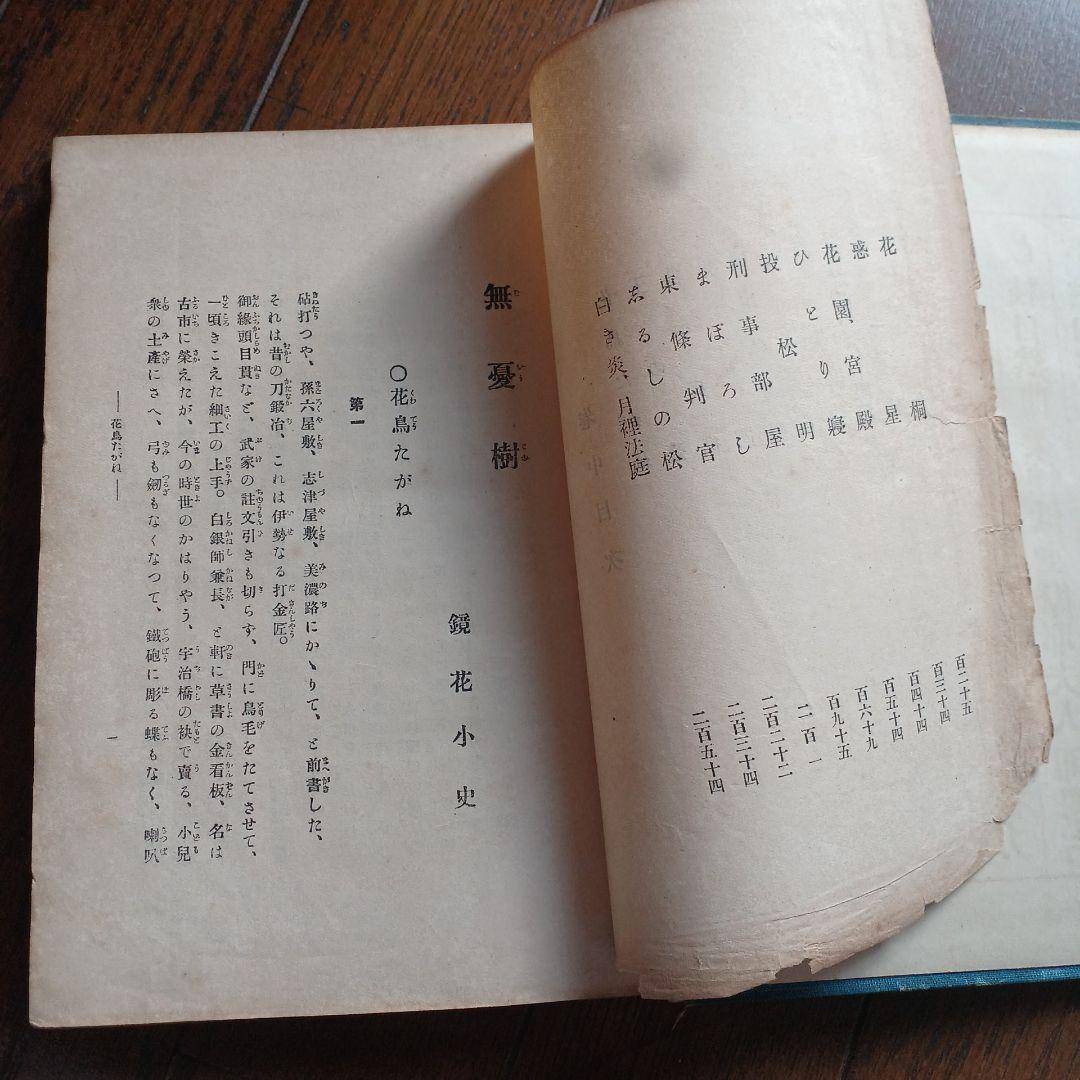 花桐 百二十五
惑星 百三十四
花園、宮殿 百四十四
ひとり寢 百五十四
投松明 百六十九
刑事部屋 百九十五
まぼろし 二百一
東條判官 二百二十二
志るしの松 二百三十四
白き炎、月裡法庭 二百五十四
無憂樹
鏡花小史
〇花鳥たがね
第一
砧打つや、孫六屋敷、志津屋敷、美濃路にかゝりて、と前書した、
それは昔の刀鍛冶、これは伊勢なる打金匠。
御緣頭目貫など、武家の註文引きも切らず、門に鳥毛をたてさせて、
一頃きこえた細工の上手。白銀師兼長、と軒に草書の金看板、名は
古市に榮えたが、今の時世のかはりやう、宇治橋の袂で賣る、小兒
衆の土產にさへ、弓も劒もなくなつて、鐵砲に彫る蝶もなく、喇叭
── 花鳥たがね ──
一